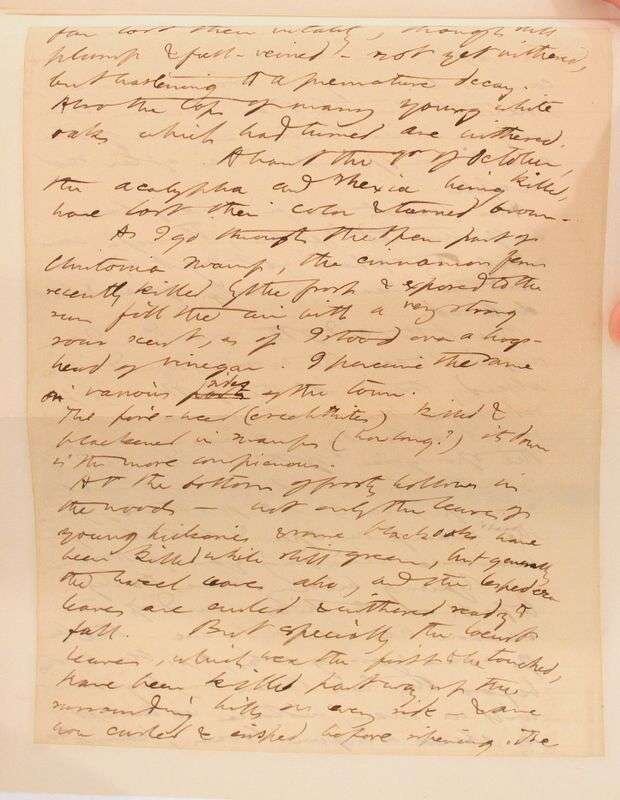 far lost their vitality, though still
plump & full-veined - not yet withered,
but hastening to a premature decay.
Also the tops of many young white
oaks which had turned are withered.
About the 9th of October,
the acalypha and rhexia being killed,
have lost their color & turned brown-
As I go through the open part of
Clintonia Swamp, the cinnamon fern
recently killed by the frost & exposed to the
sun fill the air with a very strong
sour scent, as if I stood over a hogs-
head of vinegar. I perceive the same
in various sides of the town.
The fire-weed (erechthites) killed &
blackened in swamps (how long?) its down
is the more conspicuous.
At the bottom of frosty hollows in
the woods - not only the leaves of
young hickories & some black oaks have
been killed while still green, but generally
the hazel leaves also, and the lespedeza
leaves are curled & withered ready to
fall. But especially the locust
leaves, which was the first to be touched,
have been killed part way up the
surrounding hills on every side - & are
now curled & crisped before ripening. The